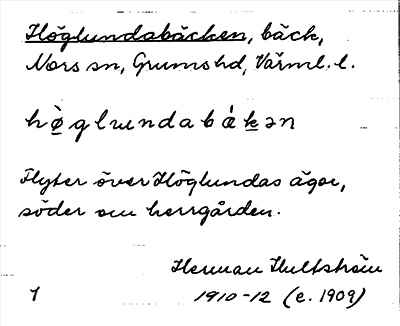 Höglundabäcken, bäck,
Nors sn, Grums hd, Värml. l.
hø̀glundabǽkən
Flyter över Höglundas ägor,
söder om herrgården.
Herman Hultström
1910-12 (e. 1909)
1